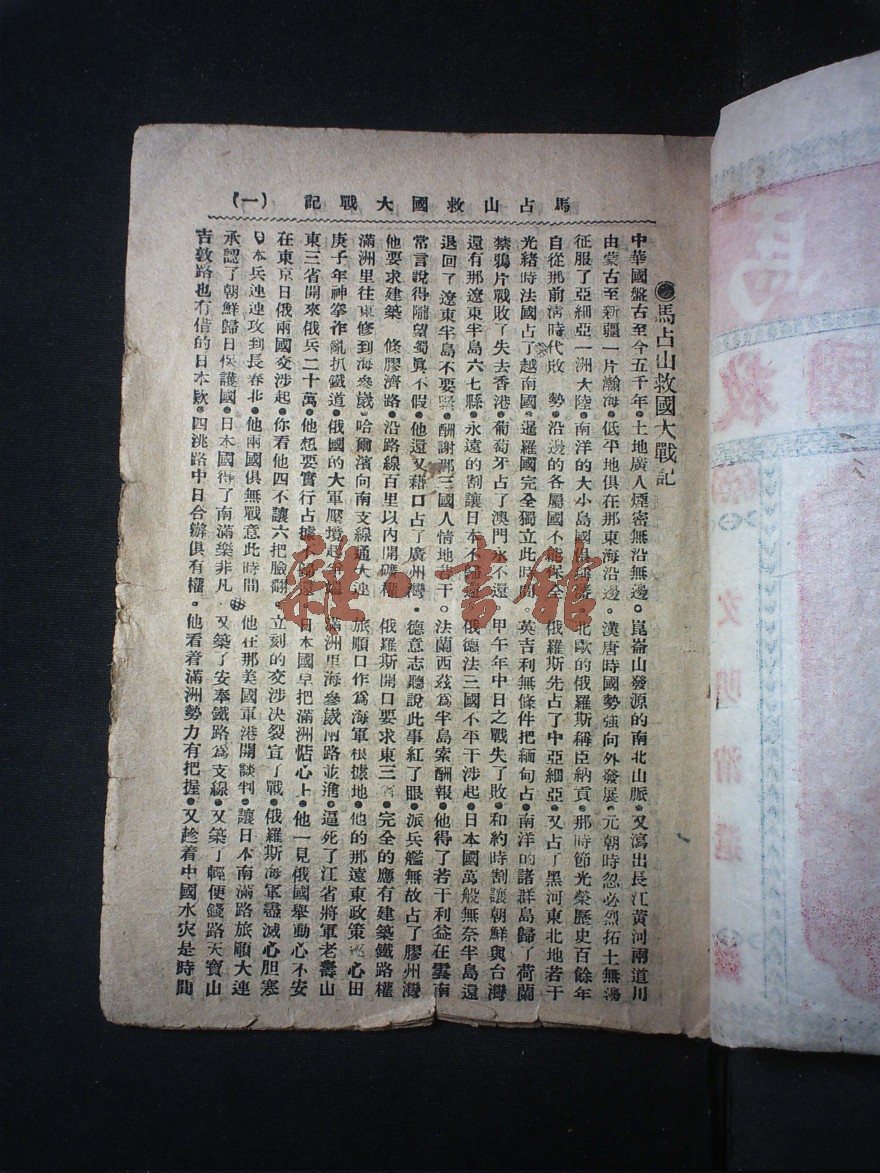 馬占山救國大戰記 (一)
馬占山救國大戰記
中華國盤古至今五千年●土地廣人煙密無沿無邊●崑崙山發源的南北山脈●又瀉出長江黃河兩道川
由蒙古至新疆一片瀚海●低平地俱在那東海沿邊●漢唐時國勢強向外發展●元朝時忽必烈拓土無
征服了亞細亞一洲大陸●南洋的大小島國俱●北歐的俄羅斯稱臣納貢●那時節光榮歷史百餘年
自從那前淸時代敗 勢●沿邊的各屬國不能保全●俄羅斯先占了中亞細亞●又占了黑河東北地若干
光緒時法國占了越南國●暹羅國完全獨立此時間●英吉利無條件把緬甸占●南洋的諸群島歸了荷蘭
禁鴉片戰敗了失去香港●葡萄牙占了澳門永不還●甲午年中日之戰失了敗●和約時割讓朝鮮與台灣
還有那遼東半島六七縣●永遠的割讓日本不●俄德法三國不平干涉起●日本國萬般無奈半島還
退回了遼東半島不要緊●酬謝那三國人情地若干●法蘭西茲為半島索酬報●他得了若干利益在雲南
常言說得隴望蜀眞不假●他還又藉口占了廣州灣●德意志聽說此事紅了眼●派兵艦無故占了膠州灣
他要求建築 條膠濟路●沿路線百里以內開礦權●俄羅斯開口要求東三省●完全的應有建築鐵路權
滿洲里往東修到海參崴●哈爾濱向南支線通大連●旅順口作為海軍根據地●他的那遠東政策心田
庚子年神拳作亂扒鐵道●俄國的大軍壓境起●滿洲里海參崴兩路並進●逼死了江省將軍老壽山
東三省開來俄兵二十萬●他想要實行占據不●日本國早把滿洲惦心上●他一見俄國舉動心不安
在東京日俄兩國交涉起●你看他四不讓六把臉翻●立刻的交涉決裂宣了戰●俄羅斯海軍盡滅心胆寒
日本兵連連攻到長春北●他兩國俱無戰意此時間●他在那美國軍港開談判●讓日本南滿路旅順大連
承認了朝鮮歸日保護國●日本國得了南滿樂非凡●又築了安奉鐵路為支線●又築了輕便錢路天寶山
吉敦路也有借的日本欵●四洮路中日合辦俱有權●他看着滿洲勢力有把握●又趁着中國水灾是時間
雜·書館
馬
國救
文明消遣